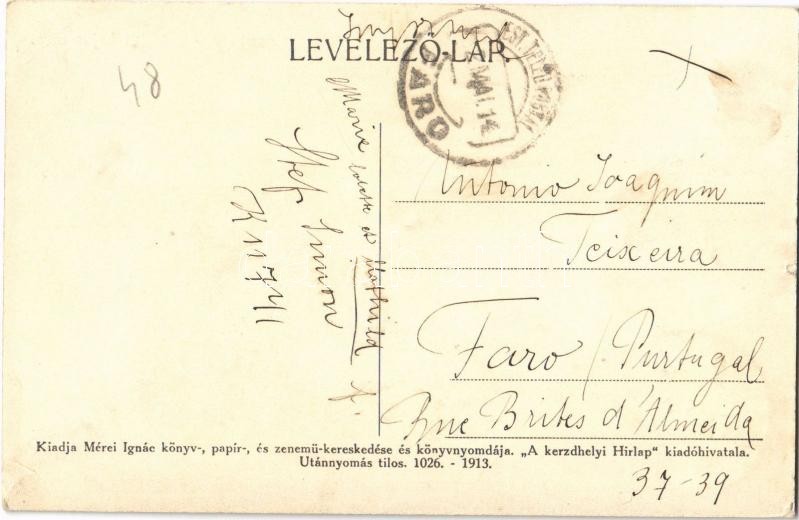 LEVELEZŐ-LAP.
FARO
MAI.14
48
Antonio Joaquim
Teixeira
Faro / Purtugal
Rue Brites d'Almeida
37-39
Stef Simon
Kiadja Mérei Ignác könyv-, papír-, és zenemü-kereskedése és könyvnyomdája. „A kerzdhelyi Hirlap" kiadóhivatala.
Utánnyomás tilos. 1026. - 1913.